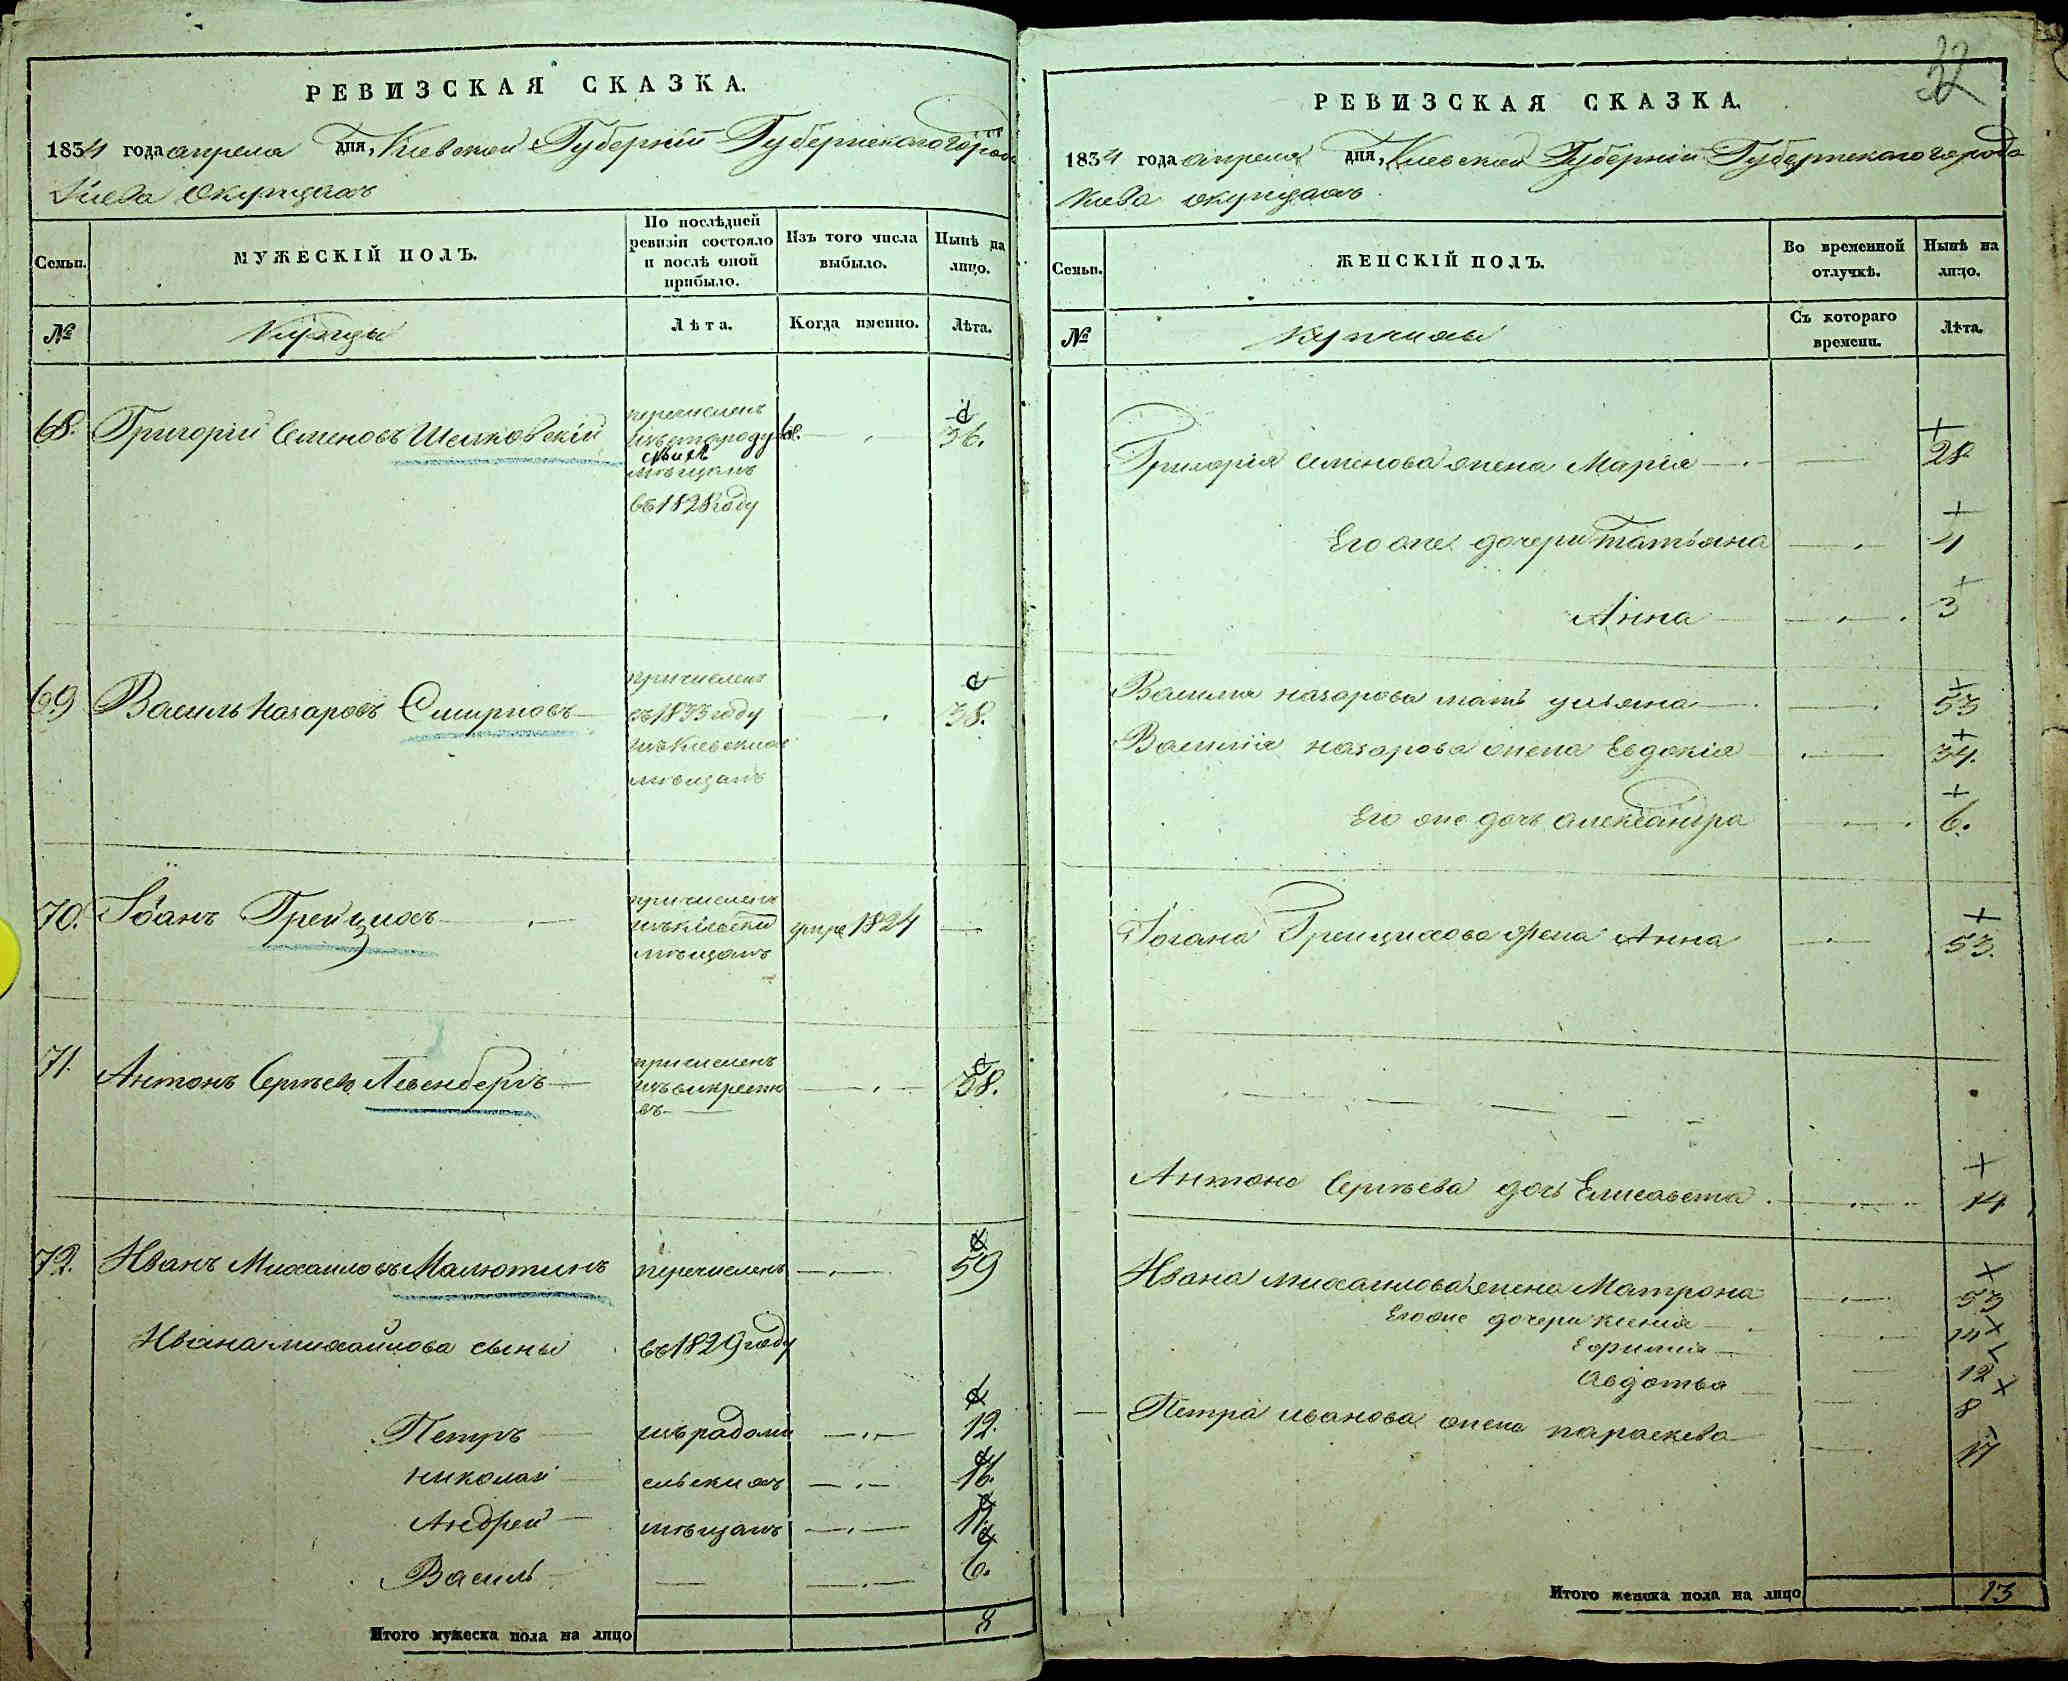 РЕВИЗСКАЯ СКАЗКА.
1834 года апреля дня, Киевской Губерніи Губернскаго города
Киева О купцахъ
Семьи.
МУЖЕСКІЙ ПОЛЪ.
По послѣдней ревизіи состояло и послѣ оной прибыло.
Изъ того числа выбыло.
Нынѣ на лицо.
№
Купцы
Лѣта.
Когда именно.
Лѣта.
68. Григорій Семеновъ Шелковскій
перечисленъ
мѣщанъ
въ 1828 году
36.
69 Василь Назаровъ Смирновъ
причисленъ
въ 1833 году
изъ Киевскихъ
мѣщанъ
38.
70. Іоганъ Грейцихъ
причисленъ
изъ кіевски
мѣщанъ
умре 1824
71. Антонъ Сергѣевъ Левенбергъ
причисленъ
изъ выкресто
въ
38.
72. Иванъ Михаиловъ Малютинъ перечисленъ 59
Ивана михайлова сыны въ 1829 году
Петръ изъ радомы 19.
Николай сльскихъ 16.
Андрей мѣщанъ 11.
Василь 6.
Итого мужеска пола на лицо 8
32
РЕВИЗСКАЯ СКАЗКА.
1834 года апреля дня, Киевской Губерніи Губернскаго города
Киева о купцахъ
Семьи.
ЖЕНСКІЙ ПОЛЪ.
Во временной отлучкѣ.
Нынѣ на лицо.
№
Купчихи
Съ котораго времени.
Лѣта.
Григорія Семенова жена Марія 28
Его же дочери Татьяна 4
Анна 3
Василия назарова мать ульяна 53
Василія назарова жена Евдокія 34.
Его же дочь александра 6.
Іогана Грейцихова жена Анна 53.
Антона Сергѣева дочь Елисавета 14
Ивана михаилова жена Матрона 53
Его же дочери ксенія 14
Ефимия 12
Авдотья 8
Петра иванова жена параскева 17
Итого женска пола на лицо 13